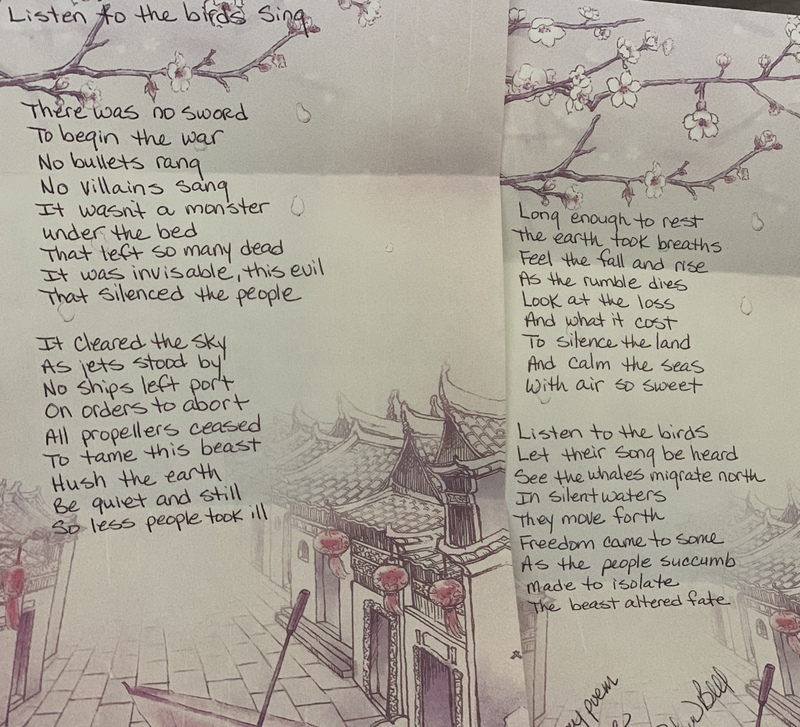 Listen to the birds Sing
There was no sword
To begin the war
No bullets rang
No villains sang
It wasn't a monster
under the bed
That left so many dead
It was invisable, this evil
That silenced the people
It cleared the sky
As jets stood by
No ships left port
On orders to abort
All propellers ceased
To tame this beast
Hush the earth
Be quiet and still
So less people took ill
Long enough to rest
The earth took breaths
Feel the fall and rise
As the rumble dies
Look at the loss
And what it cost
To silence the land
And calm the seas
With air so sweet
Listen to the birds
Let their song be heard
See the whales migrate north
In silent waters
They move forth
Freedom came to some
As the people succumb
made to isolate
The beast altered fate
poem
Bell